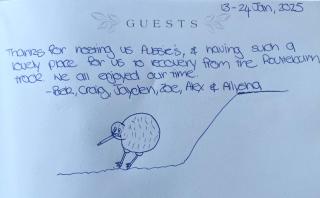 13-24 Jan, 2025
GUESTS
Thanks for hosting us Aussie's, & having such a
lovely place for us to recovery from the Routeburn
track. We all enjoyed our time.
- Craig, Jayden, Zoe, Alex &